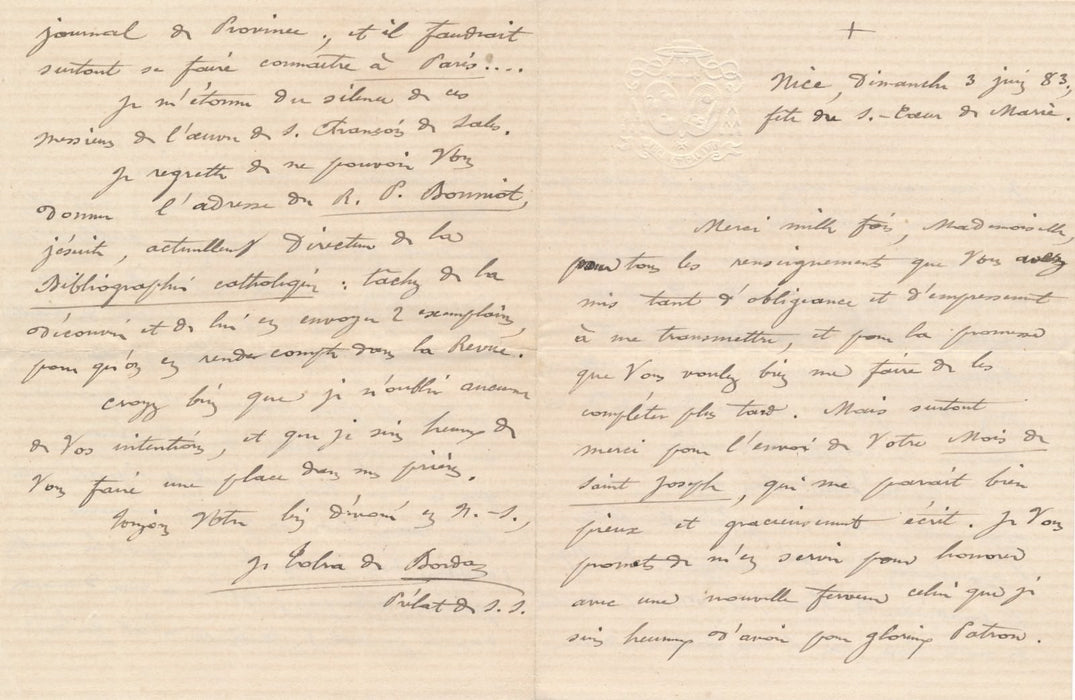 +
Nice, Dimanche 3 juin 83,
fête du S.-Cœur de Marie.
Merci mille fois, Mademoiselle,
pour tous les renseignements que Vous avez
mis tant d'obligeance et d'empressement
à me transmettre, et pour la promesse
que Vous voulez bien me faire de les
compléter plus tard. Mais surtout
merci pour l'envoi de Votre Mois de
Saint Joseph, qui me paraît bien
pieux et gracieusement écrit. Je Vous
promets de m'en servir pour honorer
avec une nouvelle ferveur celui que je
suis heureux d'avoir pour glorieux Patron.
journal de Province, et il faudrait
surtout se faire connaître à Paris....
Je m'étonne du silence de ces
messieurs de l'œuvre de S. François de Sales.
Je regrette de ne pouvoir Vous
donner l'adresse du R. P. Bonniot,
jésuite, actuellemt Directeur de la
Bibliographie catholique : tâchez de la
découvrir et de lui en envoyer 2 exemplaires,
pour qu'on en rende compte dans la Revue.
Croyez bien que je n'oublie aucune
de Vos intentions, et que je suis heureux de
Vous faire une place dans mes prières.
Toujours Votre bien dévoué en N.-S.,
J. Tolra de Bordas
Prélat de S. S.